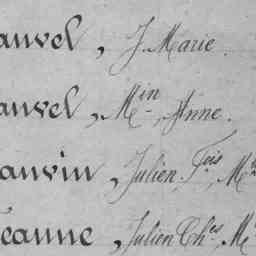 auvel, J. Marie.
auvel, Min Anne.
auvin, Julien Fois M
eanne, Julien Ches M